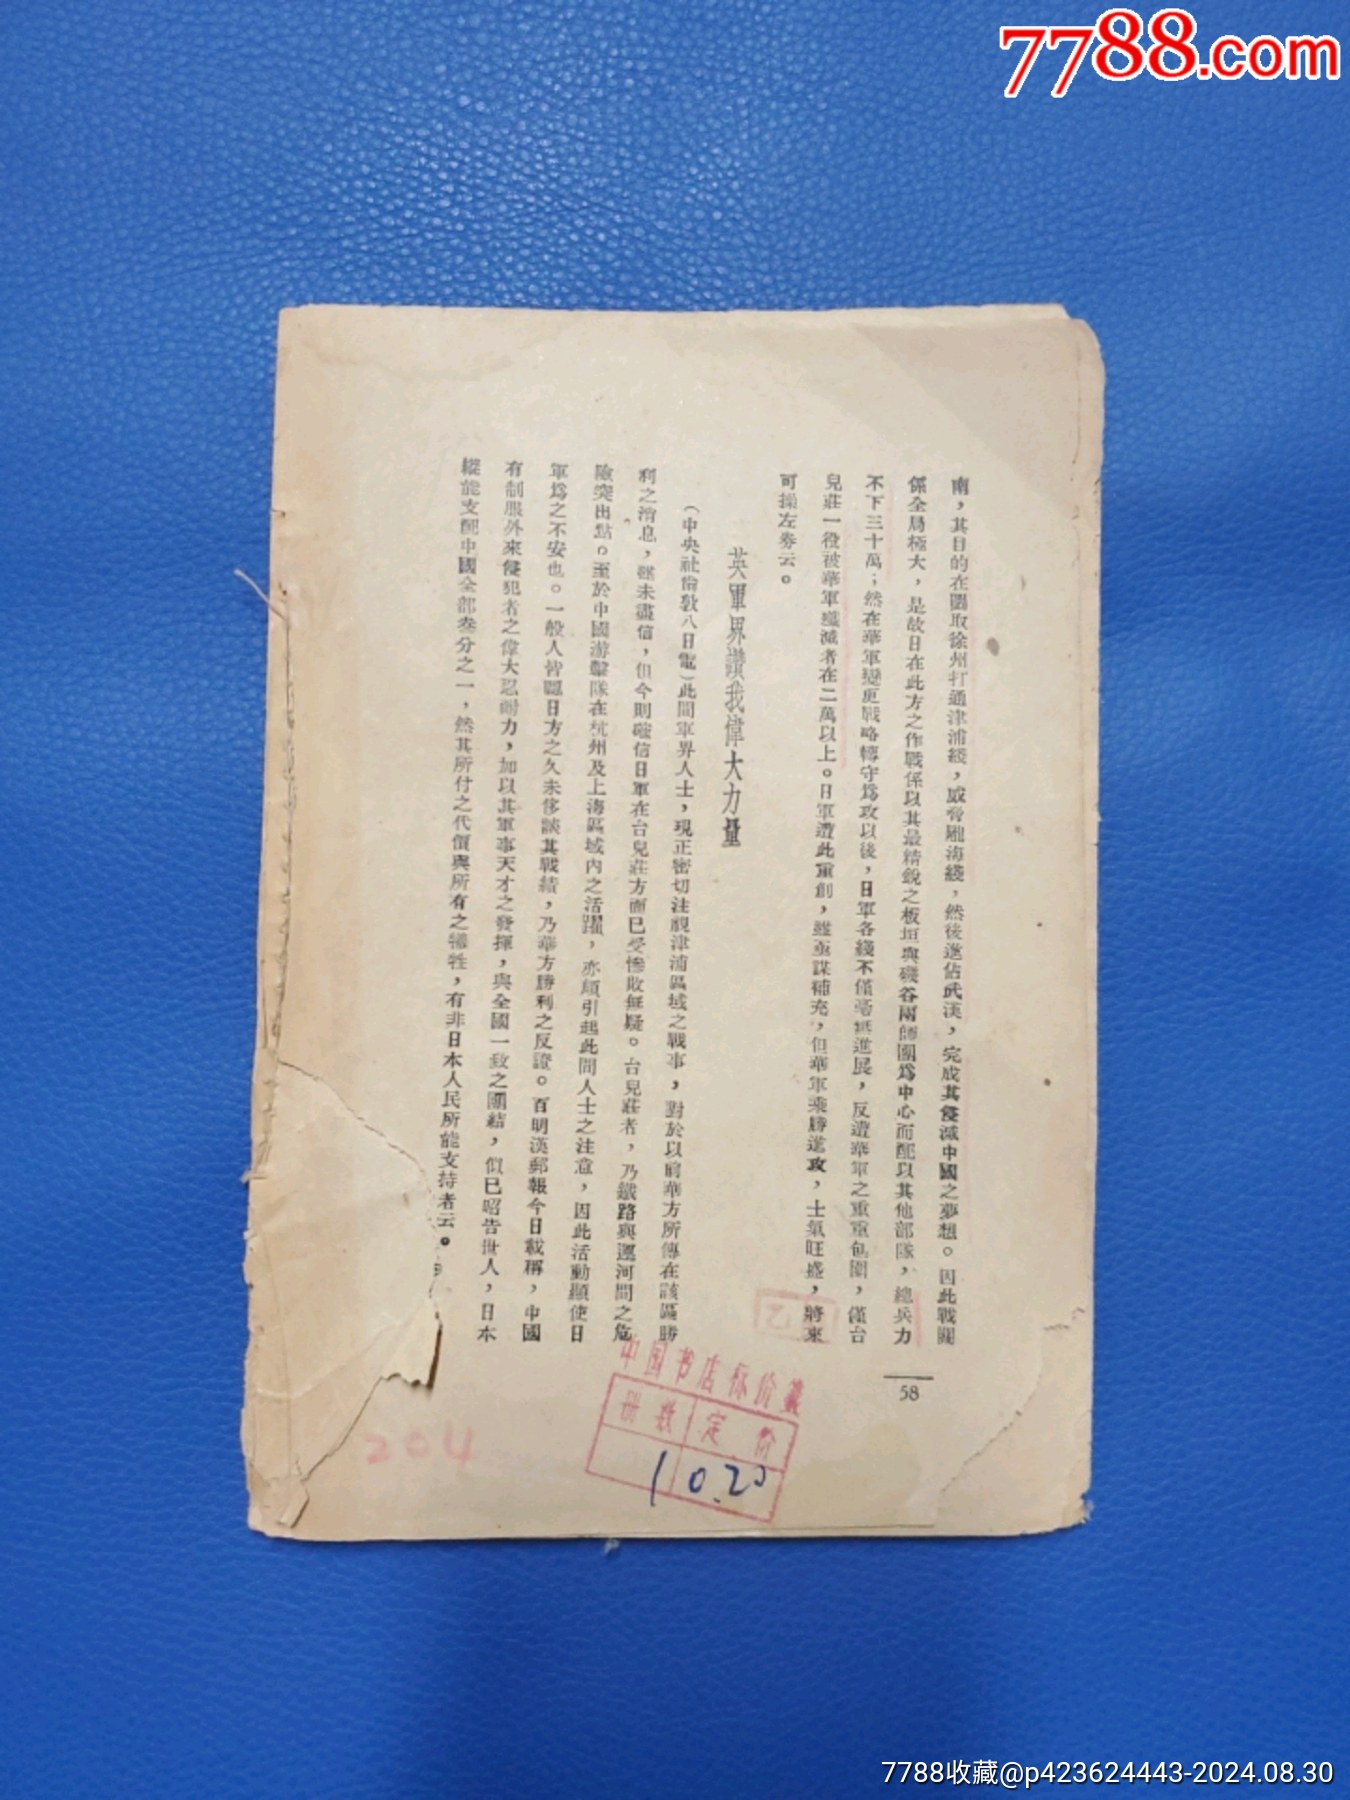 7788.com
南，其目的在圖取徐州打通津浦綫，威脅隴海綫，然後進佔武漢，完成其侵滅中國之夢想。因此戰關
係全局極大，是故日在此方之作戰係以其最精銳之板垣與磯谷兩師團爲中心而配以其他部隊，總兵力
不下三十萬；然在華軍變更戰略轉守爲攻以後，日軍各綫不僅毫無進展，反遭華軍之重重包圍，僅台
兒莊一役被華軍殲滅者在二萬以上。日軍遭此重創，雖亟謀補充，但華軍乘勝進攻，士氣旺盛，將來
可操左券云。
英軍界讚我偉大力量
（中央社倫敦八日電）此間軍界人士，現正密切注視津浦區域之戰事，對於以前華方所傳在該區勝
利之消息，雖未盡信，但今則確信日軍在台兒莊方面已受慘敗無疑。台兒莊者，乃鐵路與運河間之危
險突出點。至於中國游擊隊在杭州及上海區域內之活躍，亦頗引起此間人士之注意，因此活動顯使日
軍爲之不安也。一般人皆謂日方之久未侈談其戰績，乃華方勝利之反證。百明漢郵報今日載稱，中國
有制服外來侵犯者之偉大忍耐力，加以其軍事天才之發揮，與全國一致之團結，價已昭告世人，日本
縱能支配中國全部叁分之一，然其所付之代價與所有之犧牲，有非日本人民所能支持者云。
58
乙
中国书店标价签
册数 定价
1 0.20
204
7788收藏@p423624443-2024.08.30